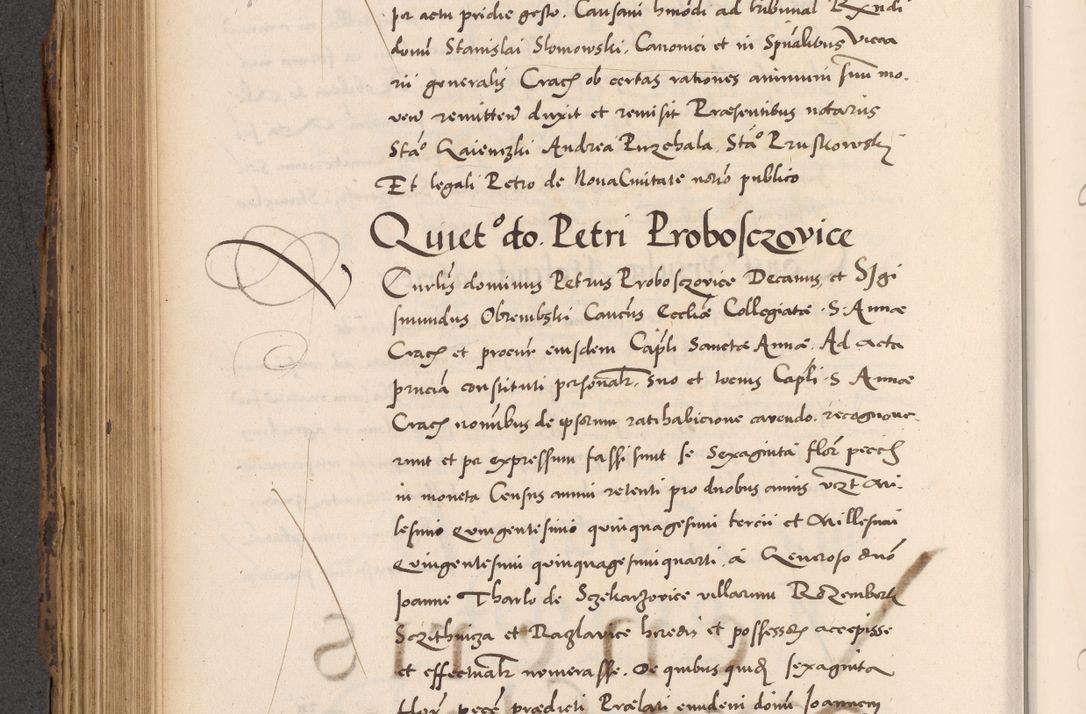 per actu pridie gesto. Causam hmodi ad tribunal Rxndi
domi Stanislai Slomowski, Canonici et in Spualibus Vica
rii generalis Crac ob certas rationes animum suu mo.
ven remitten duxit et remisit Præsentibus notarius
Sta° Andrea Sta° Pruskowski
Et legali Petro de NovaCivitate norio publico
Quiet° do. Petri Proboſczovice
Curlis dominus Petrus Proboſczovice Decanus, et Sigi
ſmundus Obrembſki Cancus Eccliæ Collegiatæ S. Annæ
Crac et procur eiuſdem Capli Sanctæ Annæ. Ad acta
prncia conſtituti perſonalr. Suo et tocius Capli S Annæ
Crac noibus de ipſorum ratihabicione cavendo. recognove.
runt et per expreſſum faſſi ſunt ſe Sexaginta flor pecch
in moneta Census annui retenti pro duobus annis vczt Mi
lesimo Quingentesimo quinquagesimi tercii et Millesimi
Quingentesimi quinquagesimi quarti, a Generoso dno
Joanne Tharlo de Sczekarzovice villarum
et Raglavice heredis et poſſeſſor accepiſſe
et effectualr numeraſſe. De quibus quid ſexaginta
flor pecc prædicti Prælati eundem domi Joannem